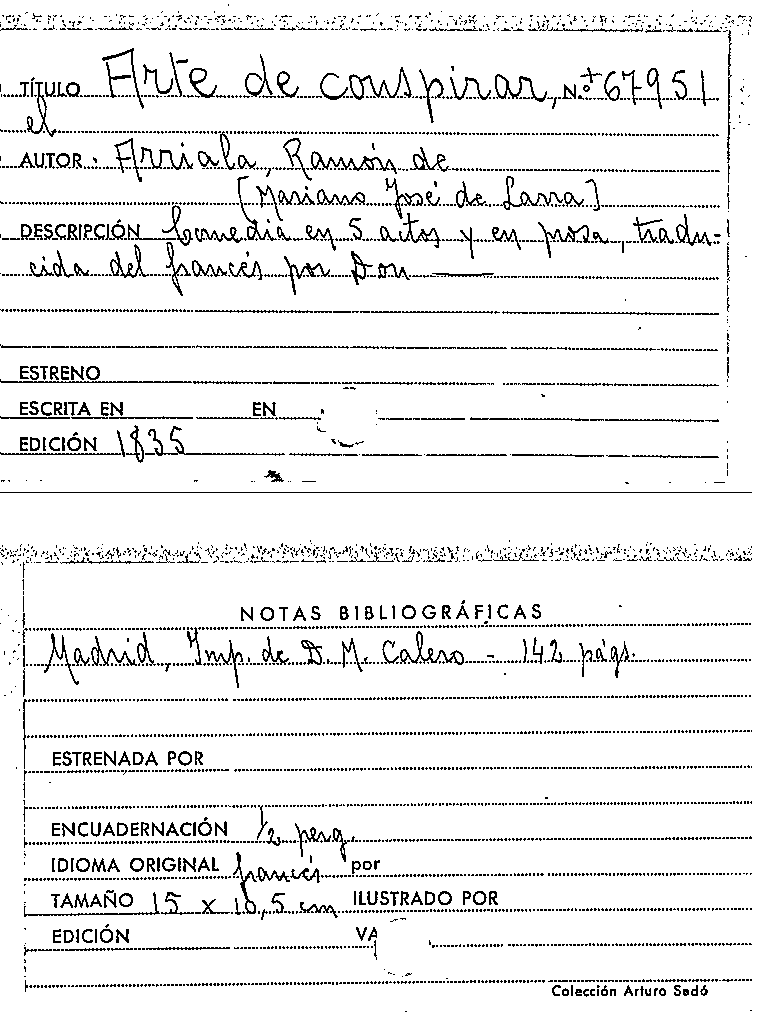 TÍTULO Arte de conspirar, N.º + 67951
el
AUTOR. Arriala, Ramón de
[Mariano José de Larra]
DESCRIPCIÓN Comedia en 5 actos y en prosa, tradu-
cida del francés por Don ——
ESTRENO
ESCRITA EN EN
EDICIÓN 1835
NOTAS BIBLIOGRÁFICAS
Madrid, Imp. de D. M. Calero - 142 págs.
ESTRENADA POR
ENCUADERNACIÓN 1/2 perg.
IDIOMA ORIGINAL francés por
TAMAÑO 15 x 10,5 cm ILUSTRADO POR
EDICIÓN VA
Colección Arturo Sedó